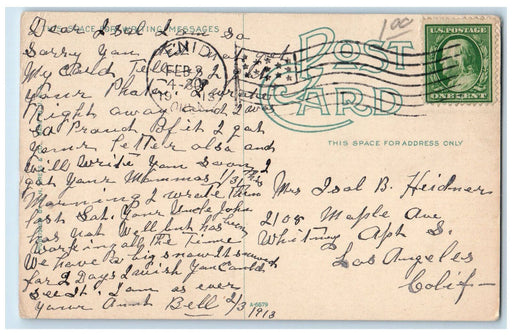 THIS SPACE FOR WRITING MESSAGES
Dear Isal I am so
Sorry You
My Card Tell
your Photo
Right away and I was
so Proud of it I got
your Letter also and
will write you soon I
got your Mammas 1/3 this
Morning I wrote them
last Sat. your Uncle John
has not Well but has been
working all the Time
We have a big snow it snowed
for 2 Days I wish you could
see it. I am as ever
your Aunt Bell 2/3 1913
ENID
FEB 3
4-30P
1913
OKLA.
100
U.S. POSTAGE
ONE CENT
POST
CARD
THIS SPACE FOR ADDRESS ONLY
Mrs Isal B. Heidner
2108 Maple Ave
Whitney Apt S.
Los Angeles
Calif
A-6679